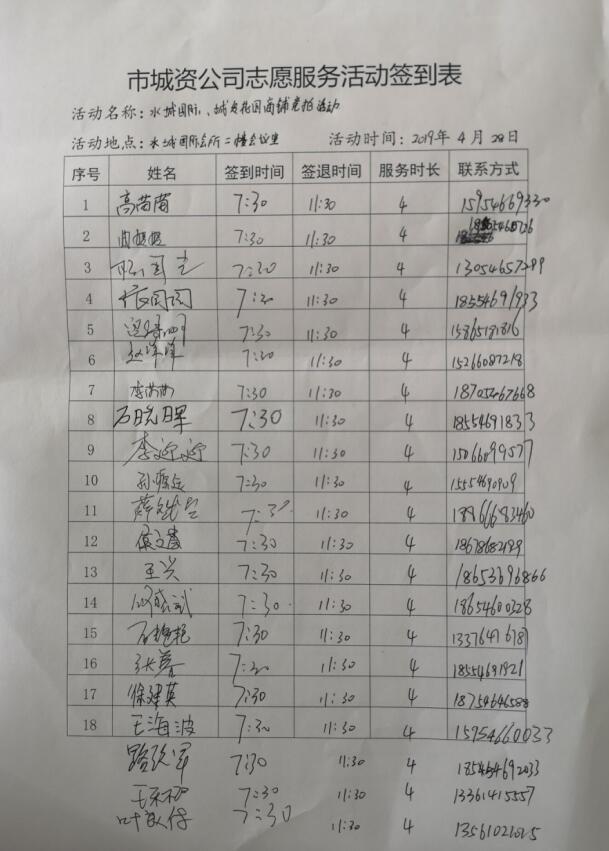 市城资公司志愿服务活动签到表
活动名称：水城国际、城发花园商铺竞拍活动
活动地点：水城国际会所二楼会议室 活动时间：2019年4月28日
序号 姓名 签到时间 签退时间 服务时长 联系方式
1 高苗苗 7:30 11:30 4 15954669330
2 7:30 11:30 4
3 7:30 11:30 4 13054657299
4 7:30 11:30 4 18554691933
5 7:30 11:30 4 15865181816
6 赵泽泽 7:20 11:30 4 15266087218
7 李苗苗 7:30 11:30 4
8 石晓晖 7:30 11:30 4 18554691833
9 李迎迎 7:30 11:30 4 15066099577
10 7:30 11:30 4 15554690909
11 7:30 11:30 4 18966683460
12 7:30 11:30 4 18678682199
13 王兴 7:30 11:30 4 18653696866
14 7:30 11:30 4 18654600328
15 石艳艳 7:30 11:30 4
16 张蓉 7:20 11:30 4 18554691921
17 徐建英 7:30 11:30 4 18754646588
18 王海波 7:30 11:30 4 15954660033
7:30 11:30 4
7:30 11:30 4 13361415557
7:30 11:30 4 13561021025